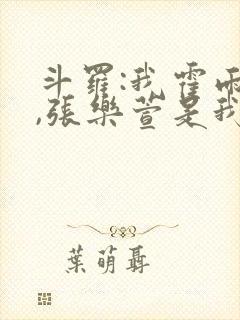 斗羅:我霍雨
,張樂萱是我
葉萌聶